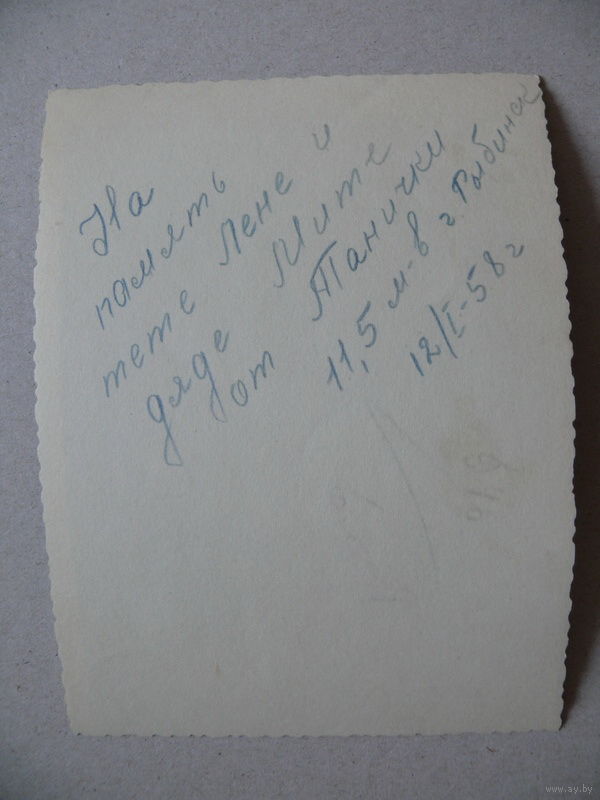 На
память
тете Лене и
дяде Мите
от Танички
11,5 м-в г. Рыбинск
12/I-58 г
www.ay.by